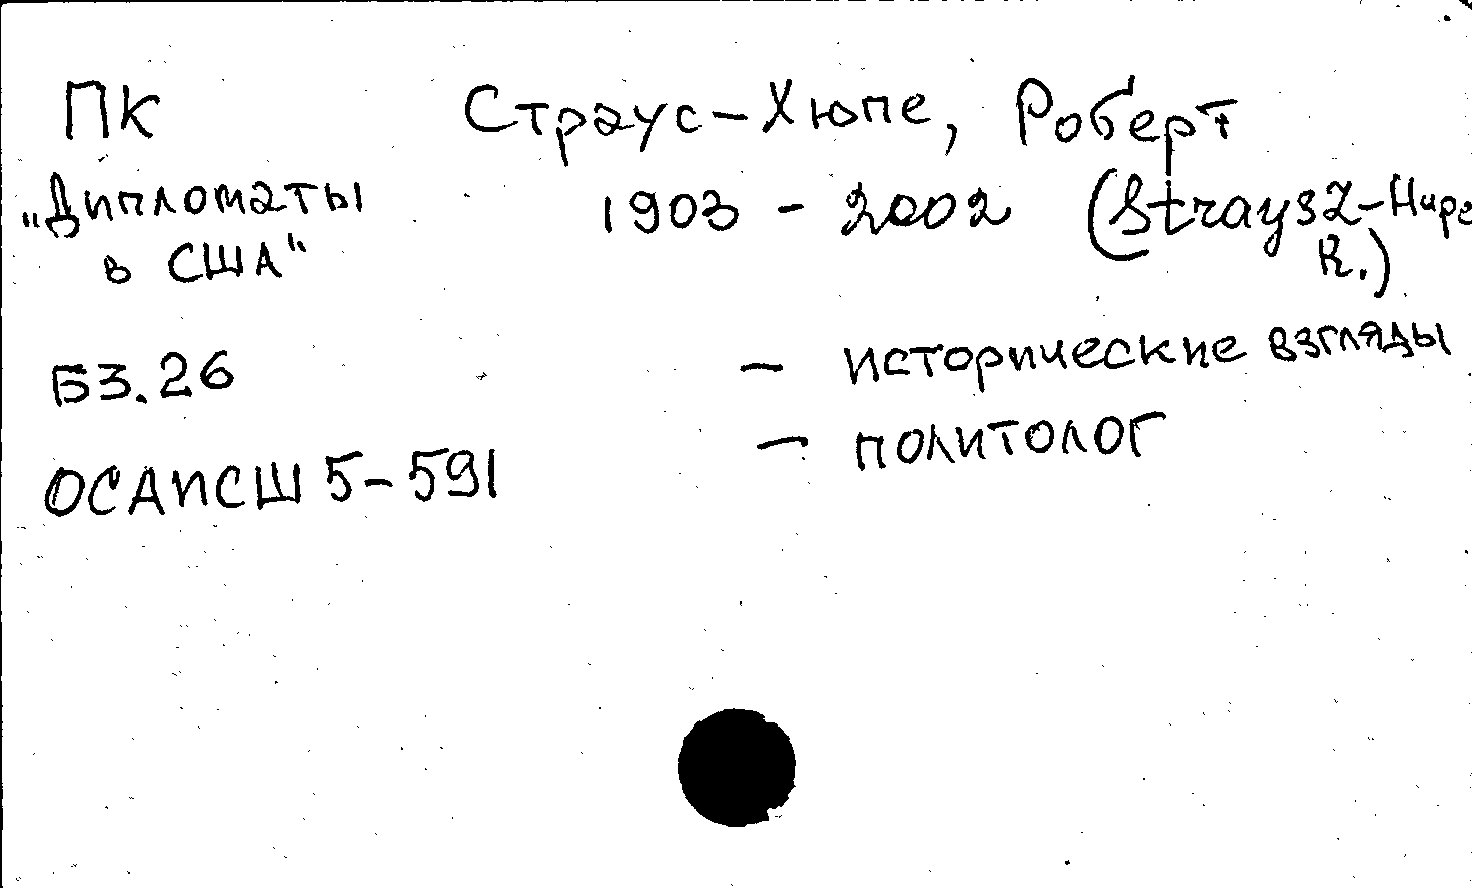 ПК Страус-Хюпе, Роберт
„Дипломаты 1903 - 2002 (Strausz-Hupe
в США“ R.)
Б3.26 - исторические взгляды
- политолог
ОСАПСШ 5-591